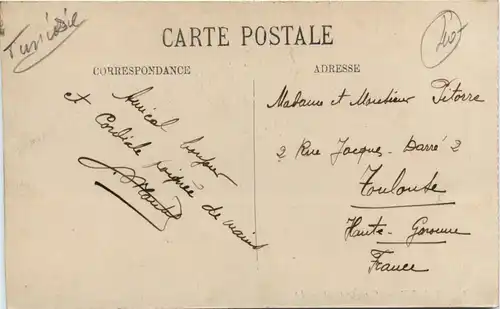 Tunisie
CARTE POSTALE
CORRESPONDANCE
ADRESSE
Amical bonjour
et Cordiale poignée de mains
Madame et Monsieur Pitorre
2 Rue Jacques-Darré 2
Toulouse
Haute-Garonne
France